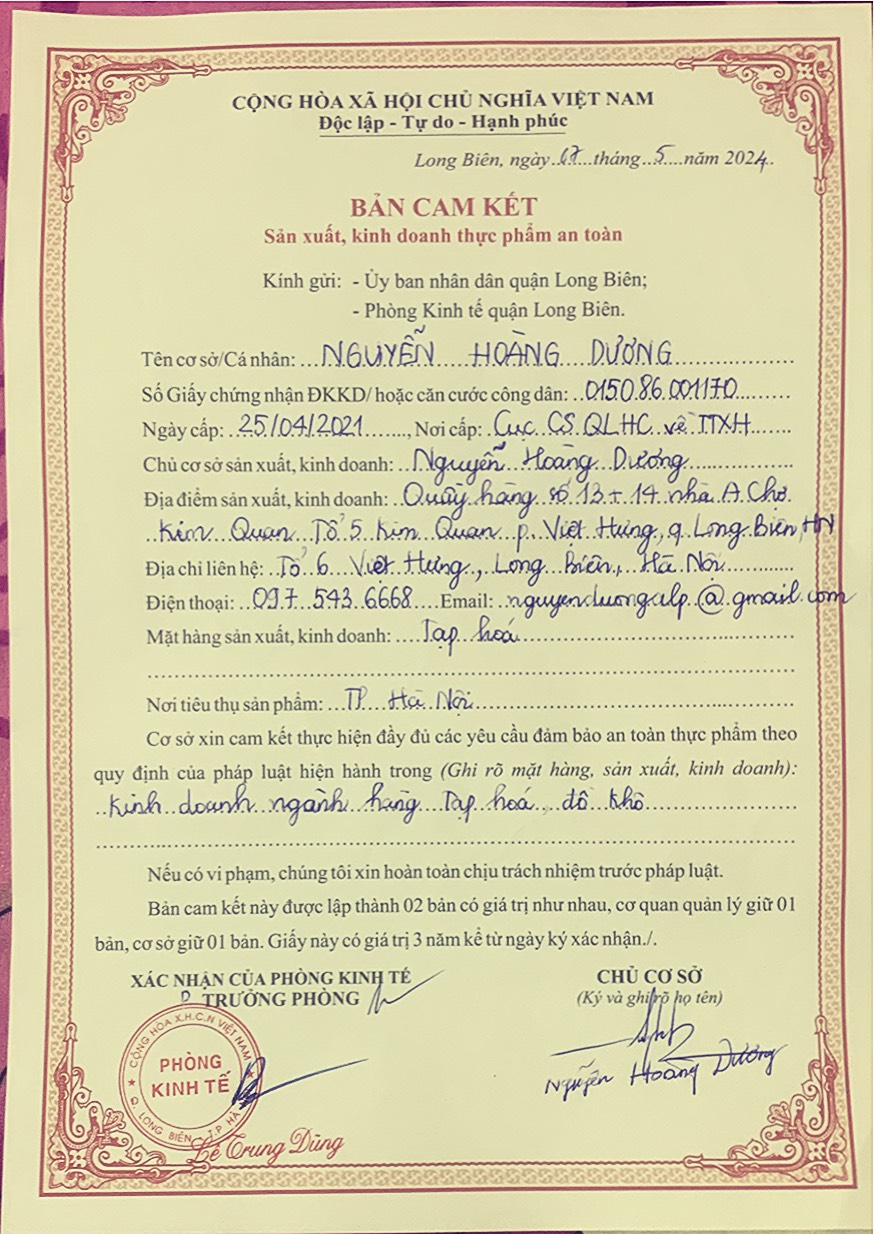 CỘNG HÒA XÃ HỘI CHỦ NGHĨA VIỆT NAM
Độc lập - Tự do - Hạnh phúc
Long Biên, ngày 17 tháng 5 năm 2024.
BẢN CAM KẾT
Sản xuất, kinh doanh thực phẩm an toàn
Kính gửi: - Ủy ban nhân dân quận Long Biên;
- Phòng Kinh tế quận Long Biên.
Tên cơ sở/Cá nhân: NGUYỄN HOÀNG DƯƠNG
Số Giấy chứng nhận ĐKKD/ hoặc căn cước công dân: 015086001170
Ngày cấp: 25/04/2021, Nơi cấp: Cục CS QLHC về TTXH
Chủ cơ sở sản xuất, kinh doanh: Nguyễn Hoàng Dương
Địa điểm sản xuất, kinh doanh: Quầy hàng số 13+14 nhà A Chợ
Kim Quan Tổ 5 Kim Quan p. Việt Hưng, q. Long Biên, HN
Địa chỉ liên hệ: Tổ 6 Việt Hưng, Long Biên, Hà Nội
Điện thoại: 097 543 6668 Email: nguyenduongalp@gmail.com
Mặt hàng sản xuất, kinh doanh: Tạp hoá
Nơi tiêu thụ sản phẩm: TP Hà Nội
Cơ sở xin cam kết thực hiện đầy đủ các yêu cầu đảm bảo an toàn thực phẩm theo
quy định của pháp luật hiện hành trong (Ghi rõ mặt hàng, sản xuất, kinh doanh):
Kinh doanh ngành hàng Tạp hoá, đồ khô
Nếu có vi phạm, chúng tôi xin hoàn toàn chịu trách nhiệm trước pháp luật.
Bản cam kết này được lập thành 02 bản có giá trị như nhau, cơ quan quản lý giữ 01
bản, cơ sở giữ 01 bản. Giấy này có giá trị 3 năm kể từ ngày ký xác nhận./.
XÁC NHẬN CỦA PHÒNG KINH TẾ
TRƯỞNG PHÒNG
CHỦ CƠ SỞ
(Ký và ghi rõ họ tên)
CỘNG HÒA X.H.C.N VIỆT NAM
PHÒNG
KINH TẾ
Q. LONG BIÊN - T.P HÀ
Nguyễn Hoàng Dương
Lê Trung Dũng